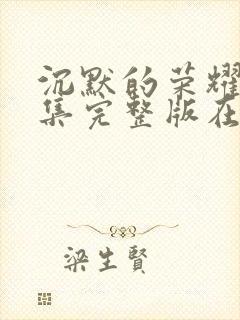 沉默的荣耀
集完整版在
梁生贤